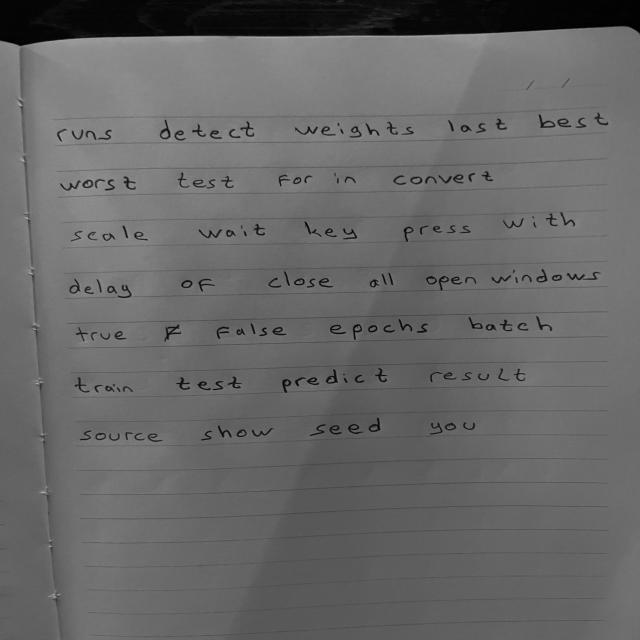 runs detect weights last best
worst test for in convert
scale wait key press with
delay of close all open windows
true False epochs batch
train test predict result
source show seed you